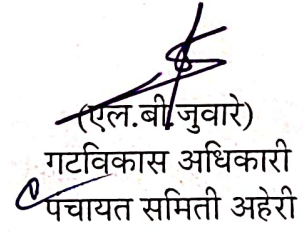 (एल.बी.जुवारे)
गटविकास अधिकारी
पंचायत समिती अहेरी